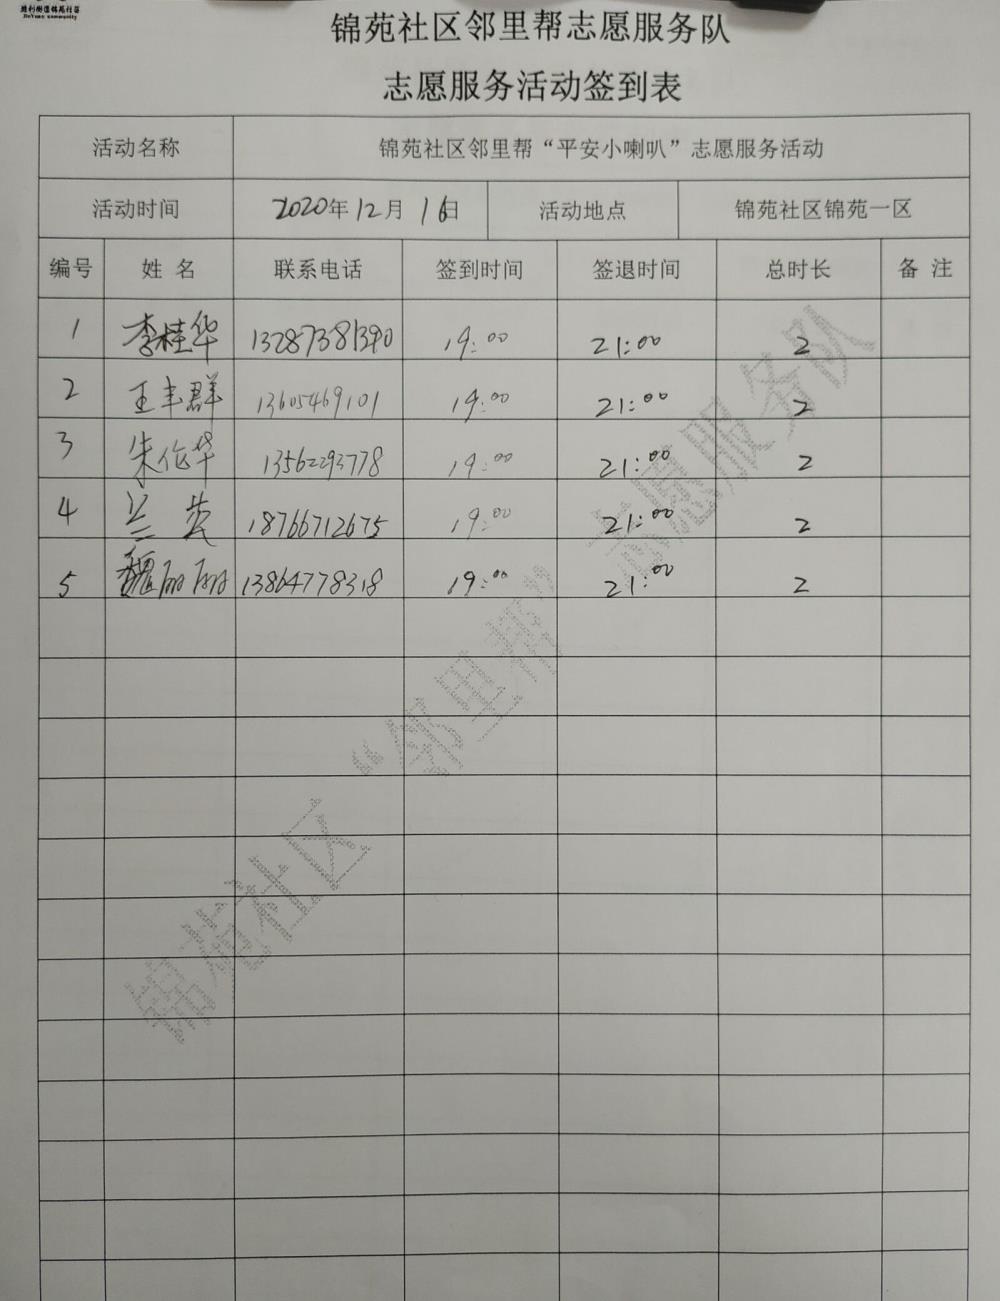 胜利街道锦苑社区
JinYuan community
锦苑社区邻里帮志愿服务队
志愿服务活动签到表
活动名称 锦苑社区邻里帮“平安小喇叭”志愿服务活动
活动时间 2020年12月16日 活动地点 锦苑社区锦苑一区
编号 姓名 联系电话 签到时间 签退时间 总时长 备注
1 李桂华 13287381390 19:00 21:00 2
2 王丰群 13605469101 19:00 21:00 2
3 朱作华 13562293778 19:00 21:00 2
4 兰英 18766712675 19:00 21:00 2
5 魏丽丽 13864778318 19:00 21:00 2
锦苑社区“邻里帮”志愿服务队